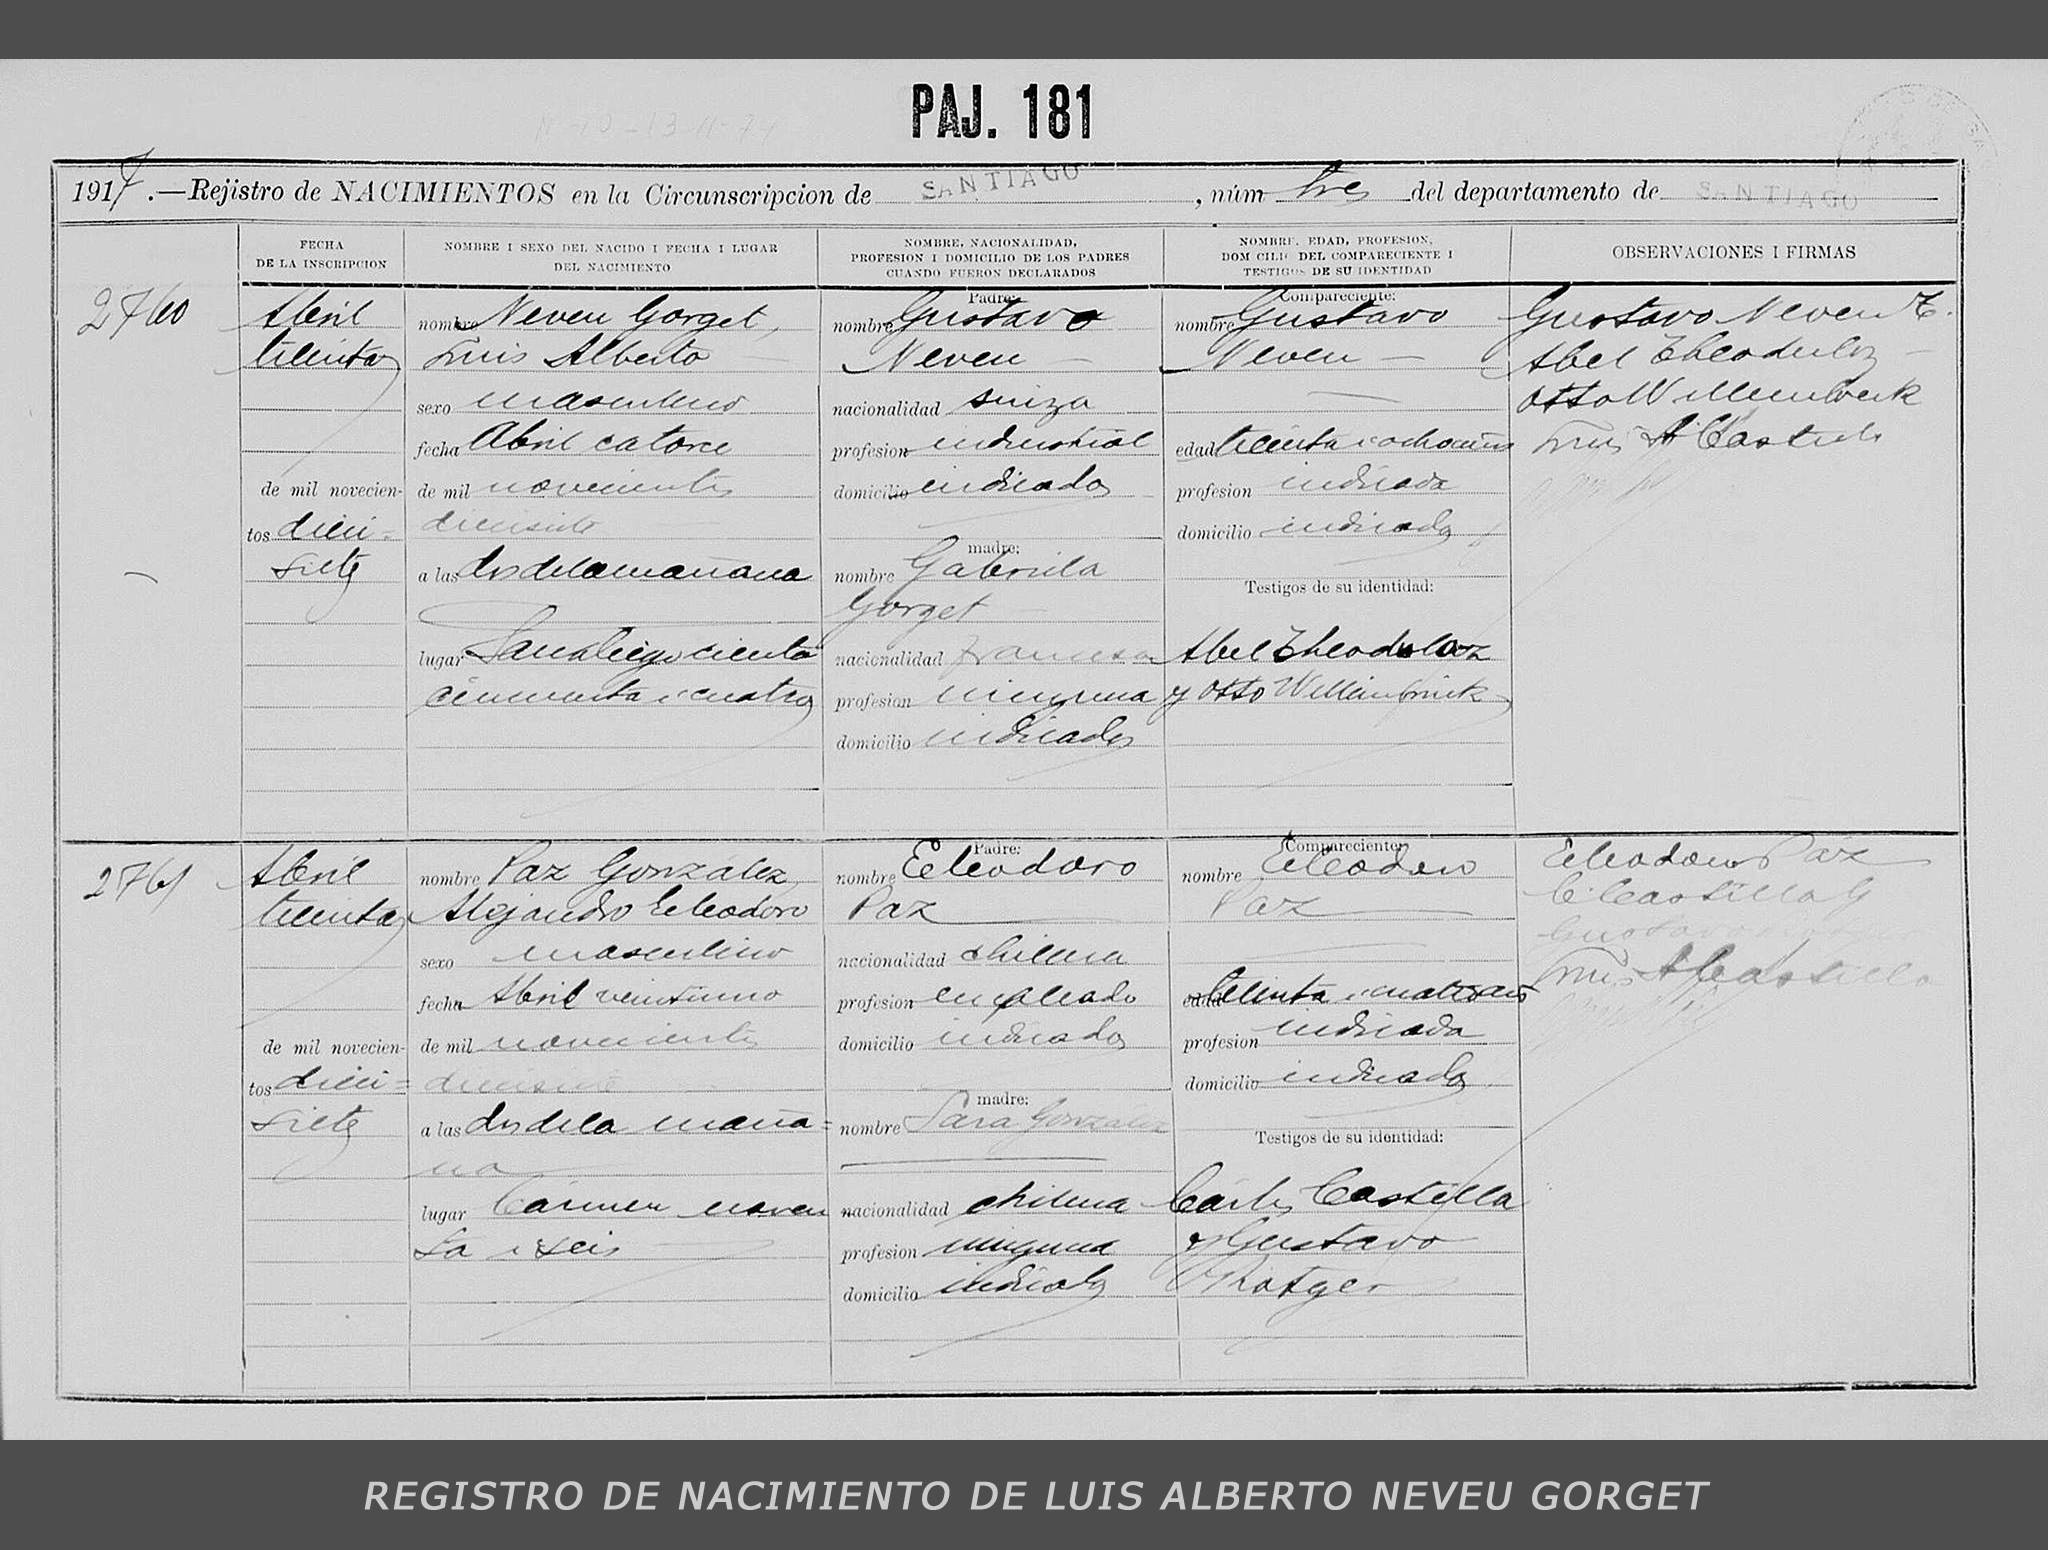 PAJ. 181
1917.—Rejistro de NACIMIENTOS en la Circunscripcion de SANTIAGO, núm tres del departamento de SANTIAGO
FECHA
DE LA INSCRIPCION
NOMBRE I SEXO DEL NACIDO I FECHA I LUGAR
DEL NACIMIENTO
NOMBRE, NACIONALIDAD,
PROFESION I DOMICILIO DE LOS PADRES
CUANDO FUERON DECLARADOS
NOMBRE, EDAD, PROFESION,
DOMICILIO DEL COMPARECIENTE I
TESTIGOS DE SU IDENTIDAD
OBSERVACIONES I FIRMAS
2760
Abril
treinta
de mil novecien-
tos dieci=
siete
nombre Neveu Gorget,
Luis Alberto
sexo masculino
fecha Abril catorce
de mil novecientos
diecisiete
a las dos de la mañana
lugar San Diego ciento
cincuenta i cuatro
Padre:
nombre Gustavo
Neveu
nacionalidad suiza
profesion industrial
domicilio indicado
madre:
nombre Gabriela
Gorget
nacionalidad francesa
profesion ninguna
domicilio indicado
Compareciente:
nombre Gustavo
Neveu
edad treinta i ocho años
profesion indicada
domicilio indicado
Testigos de su identidad:
Abel Theoduloz
y Otto Willembrink
Gustavo Neveu T.
Abel Theoduloz
Otto
Luis A Castillo
2761
Abril
treinta
de mil novecien-
tos dieci=
siete
nombre Paz González,
Alejandro Eleodoro
sexo masculino
fecha Abril veintiuno
de mil novecientos
diecisiete
a las dos de la maña=
na
lugar Cármen noven
ta i seis
Padre:
nombre Eleodoro
Paz
nacionalidad chilena
profesion empleado
domicilio indicado
madre:
nombre Sara González
nacionalidad chilena
profesion ninguna
domicilio indicado
Compareciente:
nombre Eleodoro
Paz
edad treinta i cuatro años
profesion indicada
domicilio indicado
Testigos de su identidad:
Cárlos Castilla
y Gustavo
Rotger
Eleodoro Paz
C Castilla G
Gustavo Rotger
Luis A Castillo
REGISTRO DE NACIMIENTO DE LUIS ALBERTO NEVEU GORGET